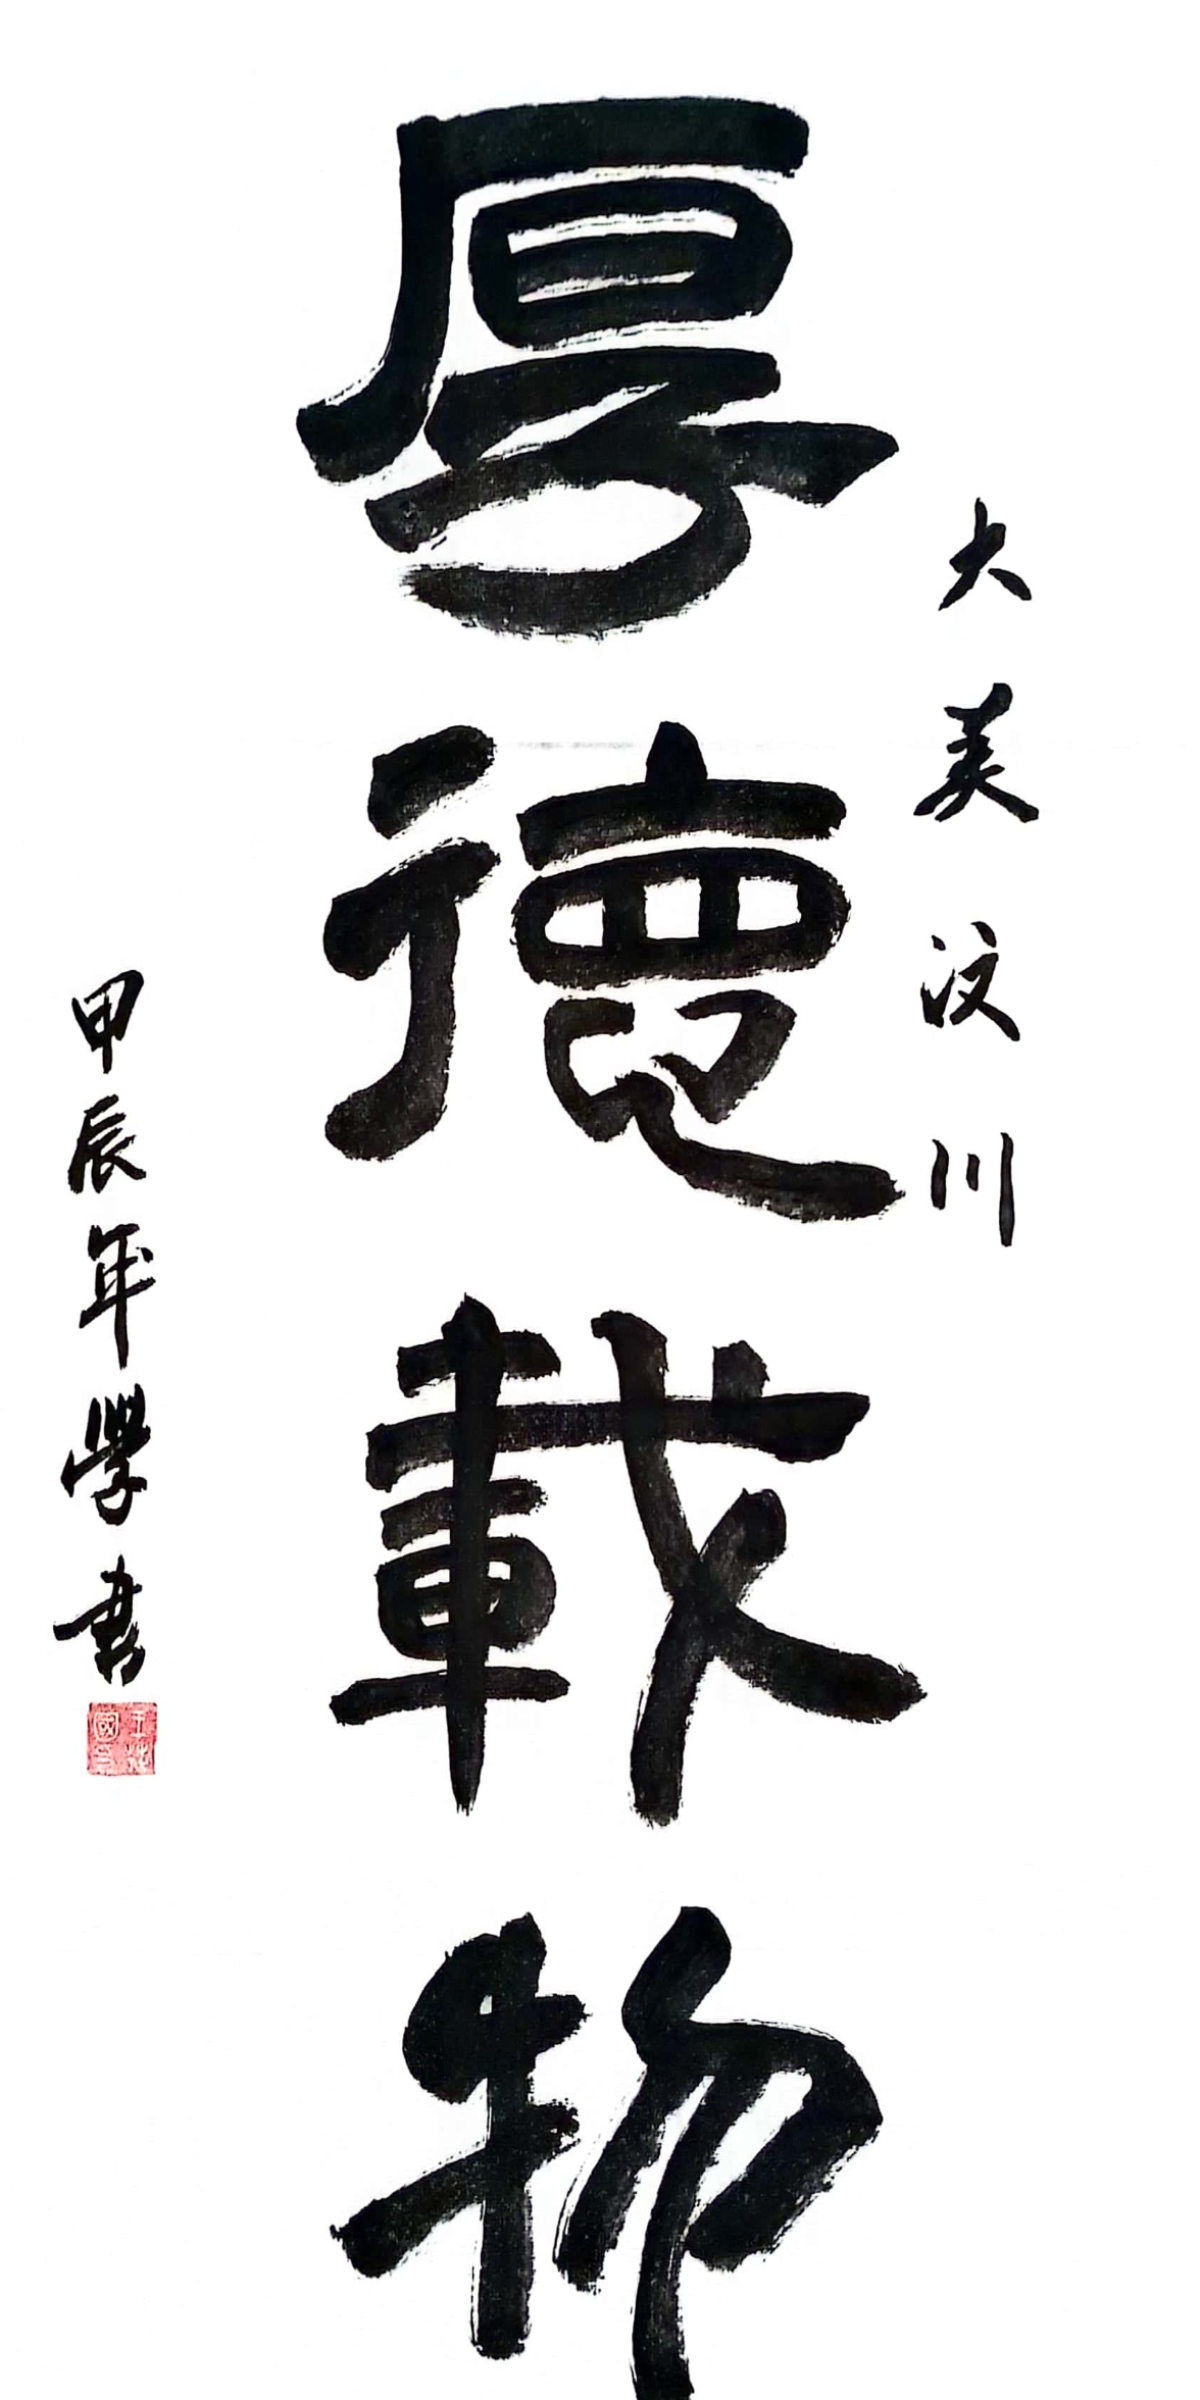 大美汶川
厚德載物
甲辰年學書